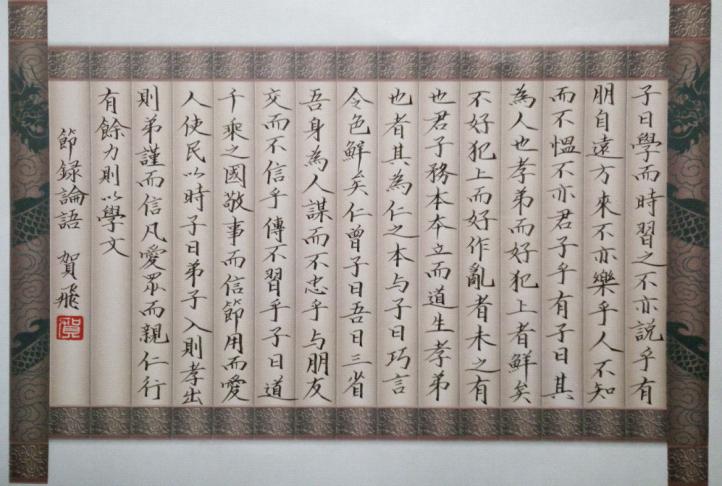 子曰學而時習之不亦説乎有
朋自遠方來不亦樂乎人不知
而不愠不亦君子乎有子曰其
為人也孝弟而好犯上者鮮矣
不好犯上而好作亂者未之有
也君子務本本立而道生孝弟
也者其為仁之本与子曰巧言
令色鮮矣仁曾子曰吾日三省
吾身為人謀而不忠乎与朋友
交而不信乎傳不習乎子曰道
千乘之國敬事而信節用而愛
人使民以時子曰弟子入則孝出
則弟謹而信凡愛眾而親仁行
有餘力則以學文
節録論語 賀飛
賀